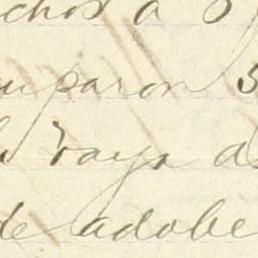 chos a
uparon 3
raya a
de adobe